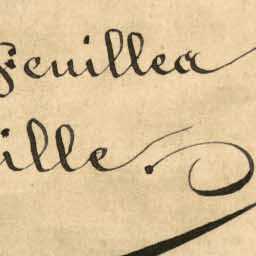 Feuillea
ille.